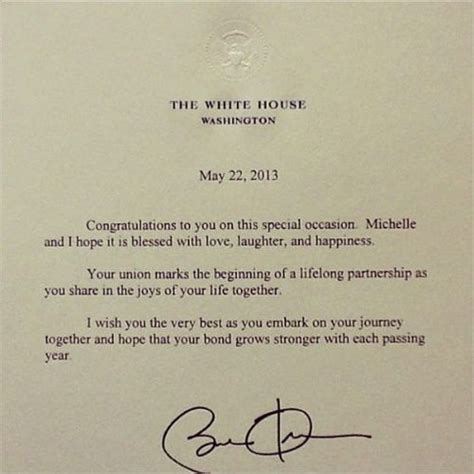 THE WHITE HOUSE
WASHINGTON
May 22, 2013
Congratulations to you on this special occasion. Michelle
and I hope it is blessed with love, laughter, and happiness.
Your union marks the beginning of a lifelong partnership as
you share in the joys of your life together.
I wish you the very best as you embark on your journey
together and hope that your bond grows stronger with each passing
year.